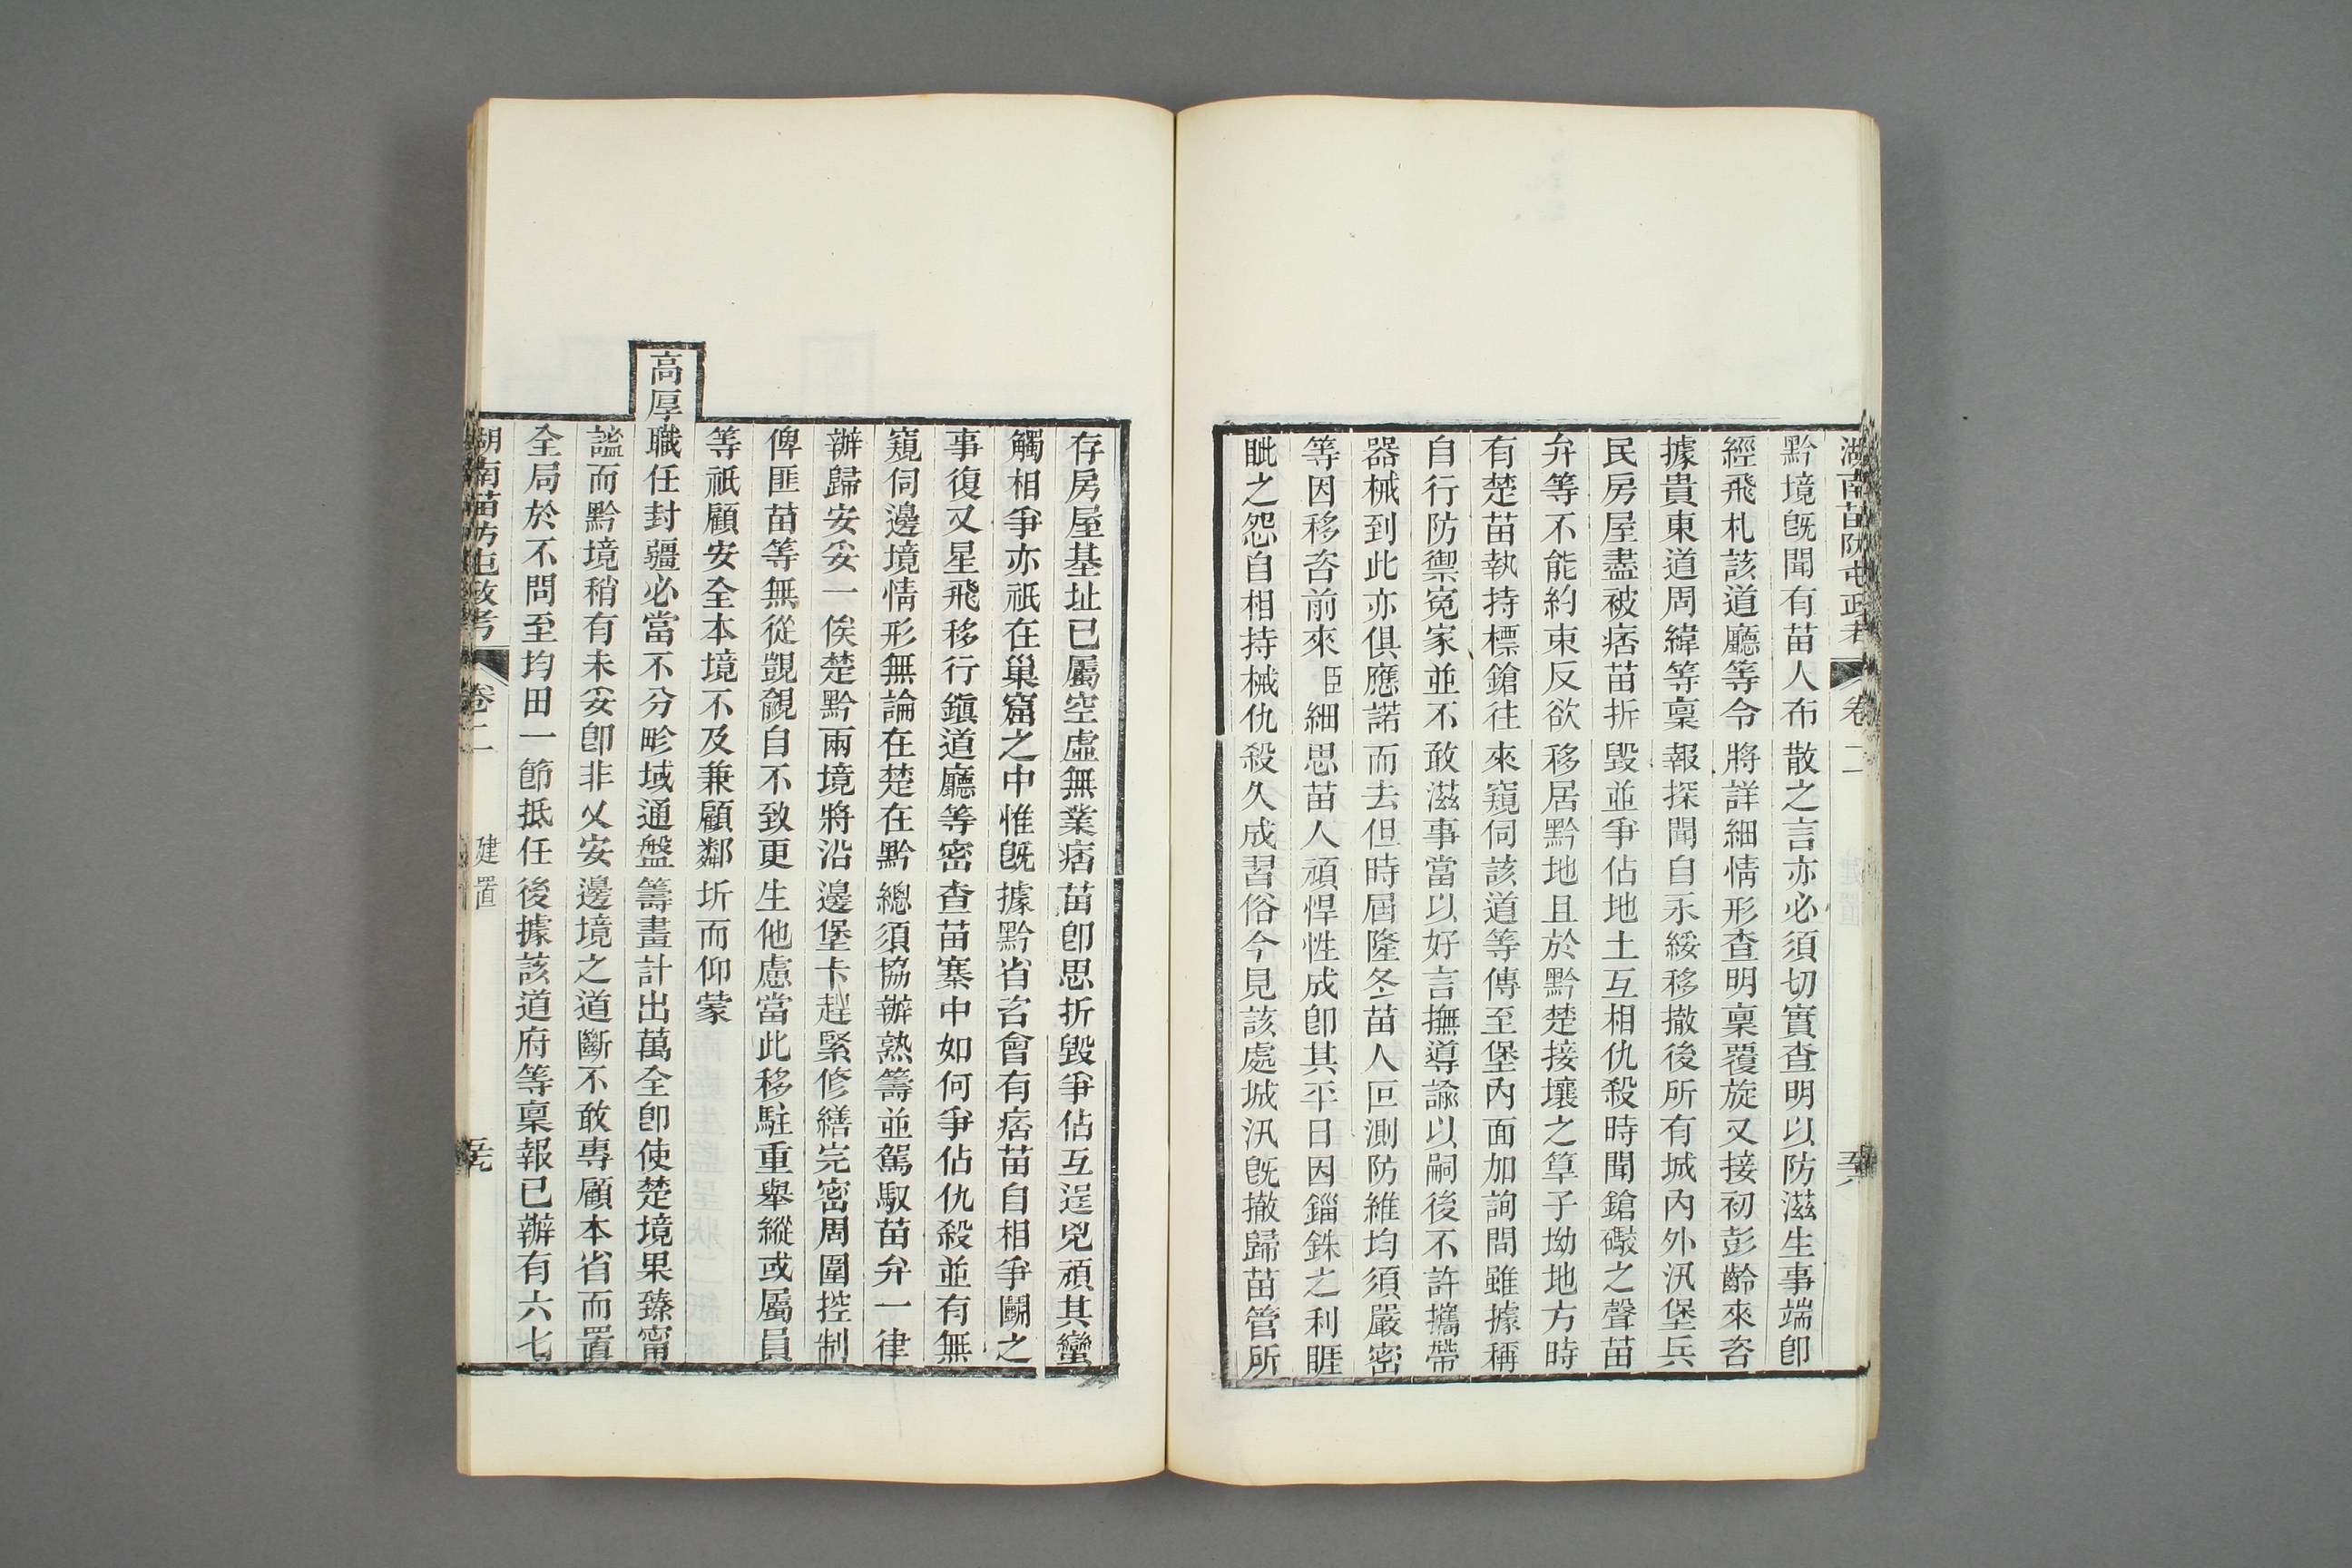 湖南苗防屯政考 卷二
黔境既聞有苗人布散之言亦必須切實查明以防滋生事端卽
經飛札該道廳等令將詳細情形查明稟覆旋又接初彭齡來咨
據貴東道周緯等稟報探聞自永綏移撤後所有城內外汛堡兵
民房屋盡被痞苗折毀並爭佔地土互相仇殺時聞鎗礮之聲苗
弁等不能約束反欲移居黔地且於黔楚接壤之䈇子坳地方時
有楚苗執持標鎗往來窺伺該道等傳至堡內面加詢問雖據稱
自行防禦寃家並不敢滋事當以好言撫導諭以嗣後不許攜帶
器械到此亦俱應諾而去但時屆隆冬苗人叵測防維均須嚴密
等因移咨前來臣細思苗人頑悍性成卽其平日因錙銖之利睚
眦之怨自相持械仇殺久成習俗今見該處城汛旣撤歸苗管所
存房屋基址已屬空虛無業痞苗卽思折毀爭佔互逞兇頑其蠻
觸相爭亦祇在巢窟之中惟旣據黔省咨會有痞苗自相爭鬬之
事復又星飛移行鎮道廳等密查苗寨中如何爭佔仇殺並有無
窺伺邊境情形無論在楚在黔總須協辦熟籌並駕馭苗弁一律
辦歸安妥一俟楚黔兩境將沿邊堡卡趕緊修繕完密周圍控制
俾匪苗等無從覬覦自不致更生他慮當此移駐重舉縱或屬員
等祇顧安全本境不及兼顧鄰圻而仰蒙
高厚職任封疆必當不分畛域通盤籌畫計出萬全卽使楚境果臻甯
謐而黔境稍有未妥卽非乂安邊境之道斷不敢專顧本省而置
全局於不問至均田一節抵任後據該道府等稟報已辦有六七
湖南苗防屯政考 卷二 建置